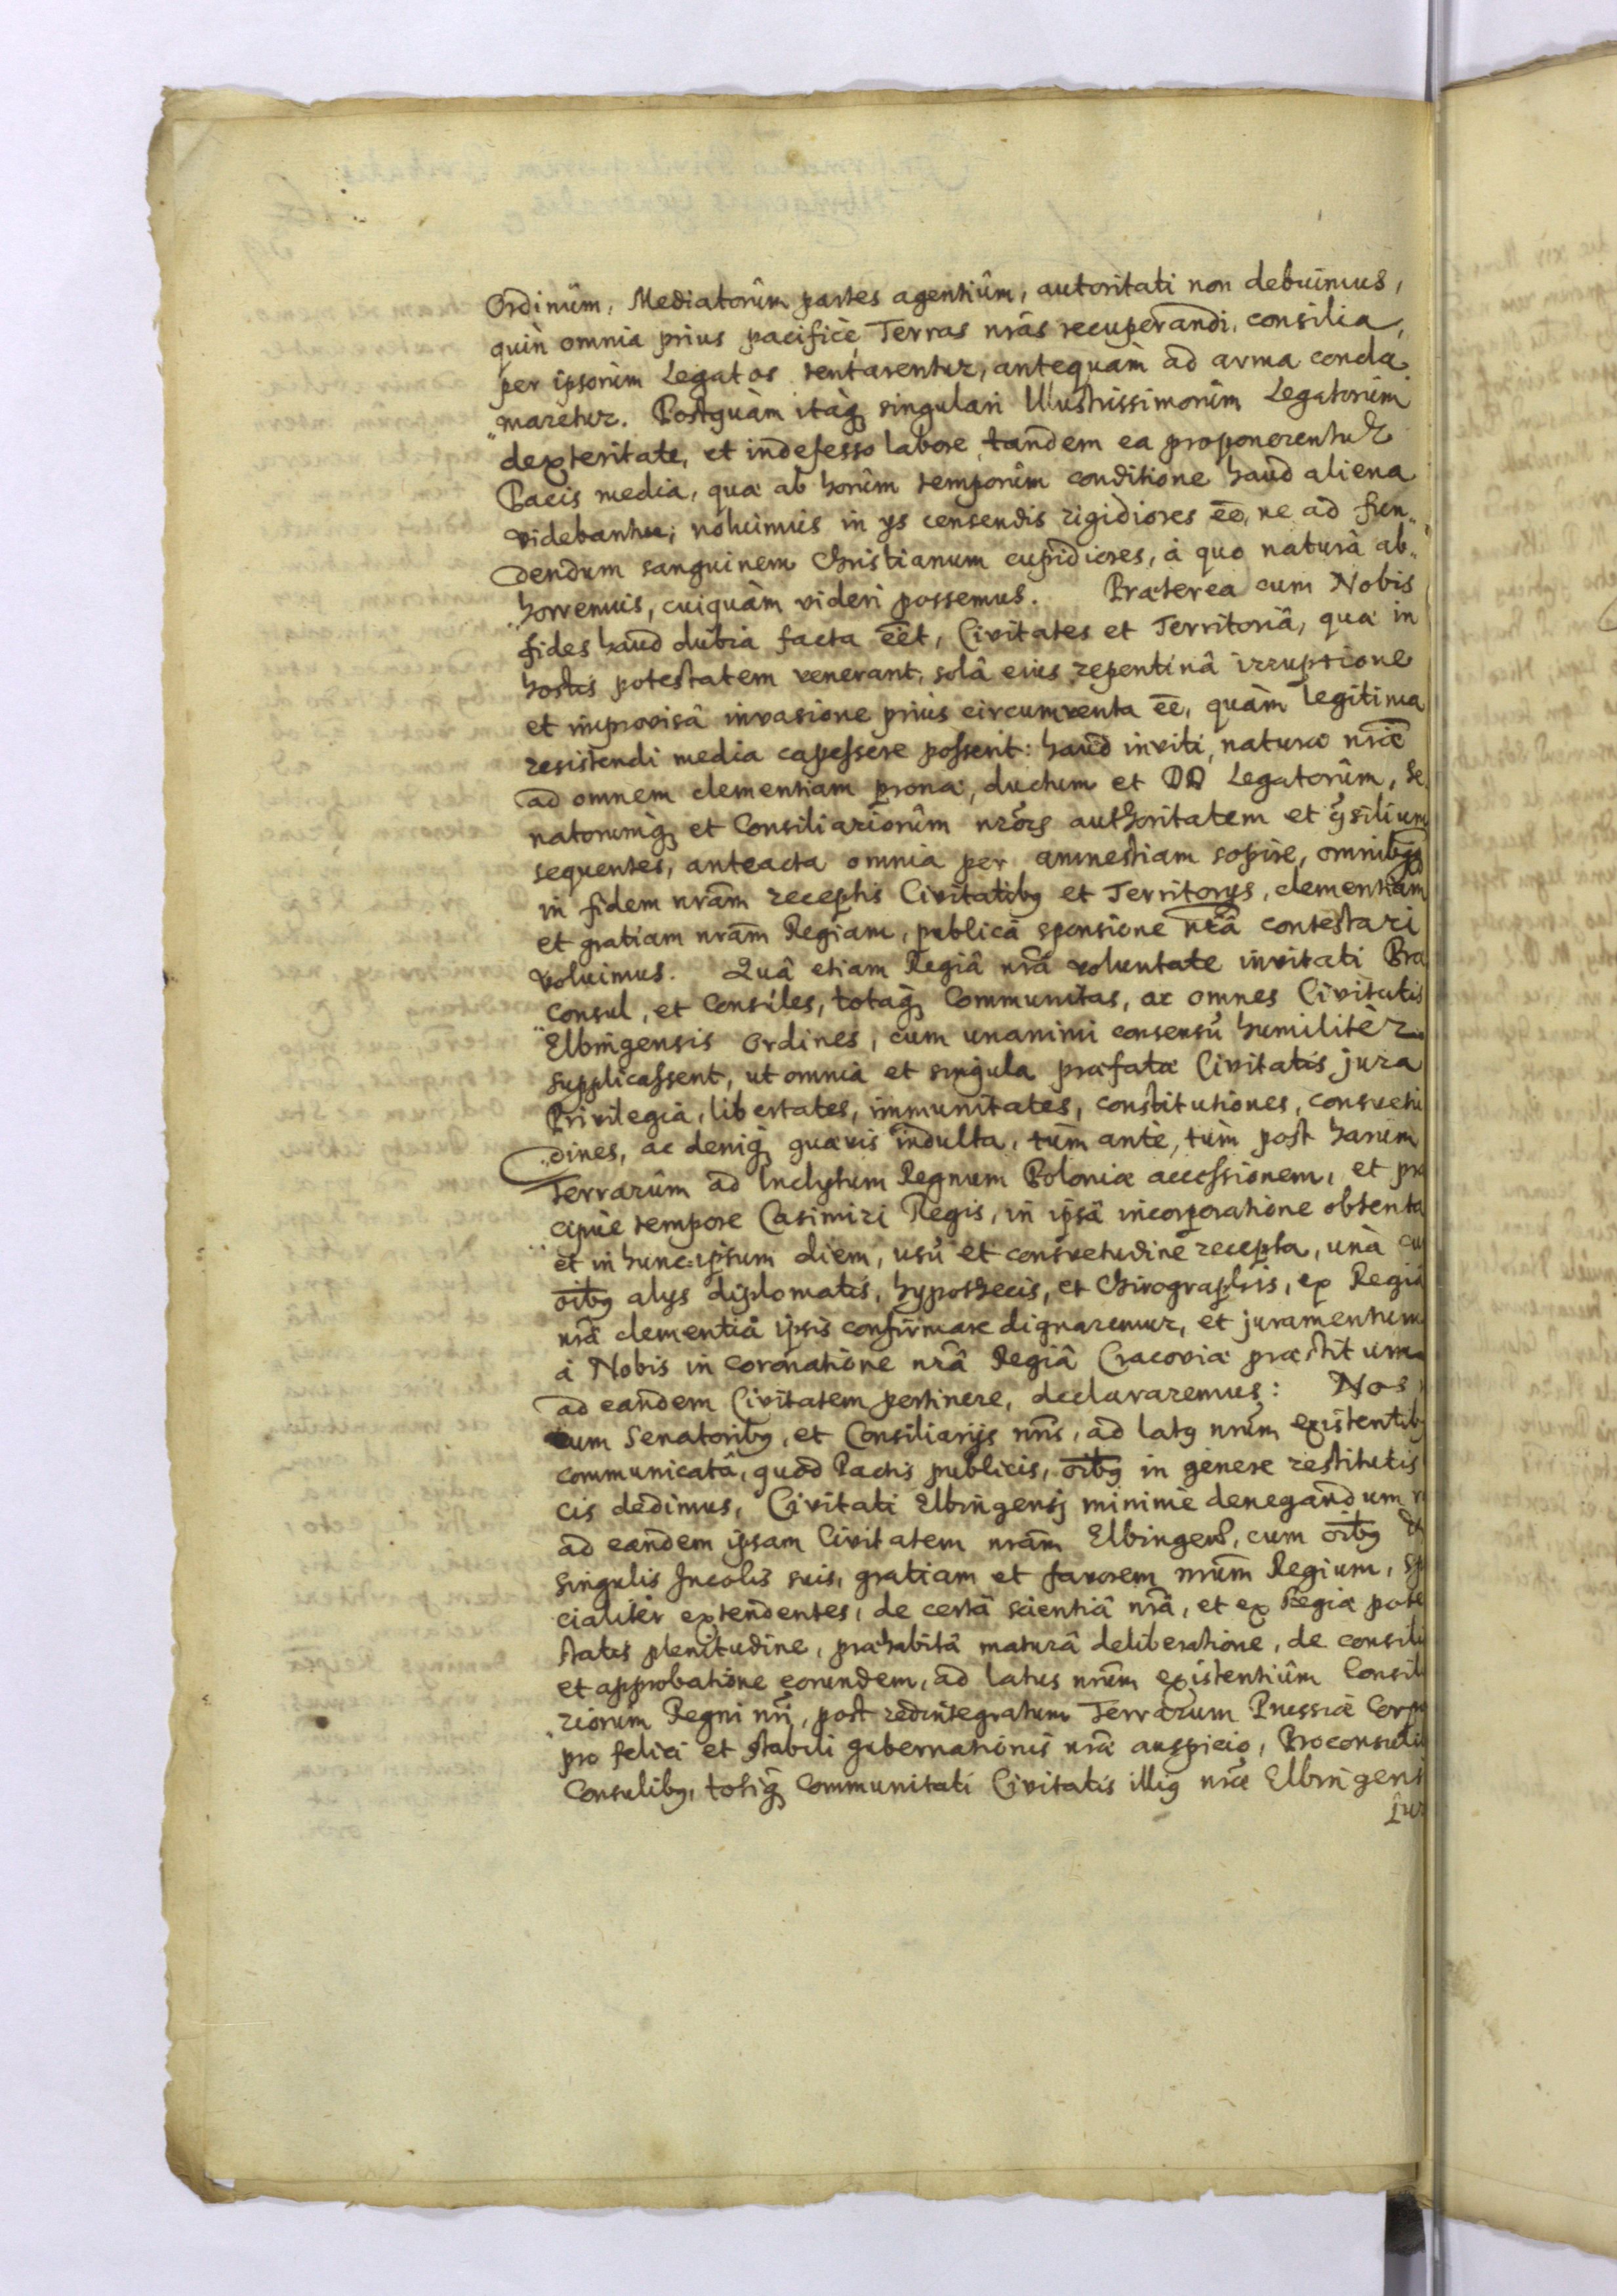 Ordinûm, Mediatorûm partes agentiûm, autoritati non debuimus,
quin omnia prius pacificè Terras nrâs recuperandi, consilia,
per ipsorûm Legatos tentarentur, antequàm ad arma concla
"marètur. Postquàm itaq̃ singulari Illustrissimorûm Legatorûm
dexteritate, et indefesso labore, tandem ea proponerentur
Pacis media, quæ ab horûm temporûm conditione haud aliena
videbantur, noluimus in ys censendis rigidiores ēē, ne ad fun„
dendum sanguinem Christianum cupidiores, à quo naturâ ab„
"horremus, cuiquàm videri possemus. Præterea cum Nobis
fides haud dubia facta ēēt, Civitates et Territoriâ, quæ in
hostis potestatem venerant, solâ eius repentinâ irruptione
et improvisâ invasione prius circumventa ēē, quàm legitima
resistendi media capessere possent: haud inviti, naturæ nr̃æ
ad omnem clementiam pronæ, ductum et DD Legatorûm, Se
natorumq̃ et Consiliariorûm nr̃ors authoritatem et ɔ̃silium
sequentes, anteacta omnia per amnestiam sopire, omnibꝯꝗ̃
in fidem nrãm receptis Civitatibꝯ et Territorys, clementiam
et gratiam nrãm Regiam, publicâ sponsione nr̃â contestari
voluimus. Quâ etiam Regiâ nr̃â voluntate invitati Præ
Consul, et Consules, totaq̃ Communitas, ac omnes Civitatis
"Elbingensis Ordines, cum unanimi consensû humilitèr
supplicassent, ut omnia et singula præfatæ Civitatis jura
Privilegia, libertates, immunitates, constitutiones, consvetu
"dines, ac deniq̃ quævis indulta, tùm antè, tùm post harum
Terrarûm ad Inclytum Regnum Poloniæ accessionem, et præ
cipuè tempore Casimiri Regis, in ipsâ incorporatione obtenta
"et in hunc ipsum diem, usû et consvetudine recepta, unà cu
oĩbꝯ alys diplomatis, hypothecis, et Chirographis, ex Regiâ
nr̃â clementiâ ipsis confirmare dignaremur, et juramentum
à Nobis in coronatione nr̃â Regiâ Cracoviæ præstitum
ad eandem Civitatem pertinere, declararemus: Nos
cum Senatoribꝯ, et Consiliarijs nr̃is, ad latꝯ nrũm existentibꝯ
communicatâ, quod Pactis publicis, oĩbꝯ in genere restitutis
cis dedimus, Civitati Elbingensj minimè denegandum
ad eandem ipsam Civitatem nrãm Elbingens̃, cum oĩbꝯ et
singulis Incolis suis, gratiam et favorem nrũm Regium, Sp
cialitèr extendentes, de certâ scientiâ nr̃â, et ex Regiæ pote
statis plenitudine, præhabitâ maturâ deliberatione, de consili
et approbatione eorundem, ad latus nrũm existentiûm Consil
riorûm Regni nr̃i, post redintegratum Terrarum Prussiæ Corp
"pro felici et stabili gubernationis nr̃æ auspicio, Proconsuli
Consulibꝯ, totiq̃ Communitati Civitatis illiꝯ nr̃æ Elbingens
Jur